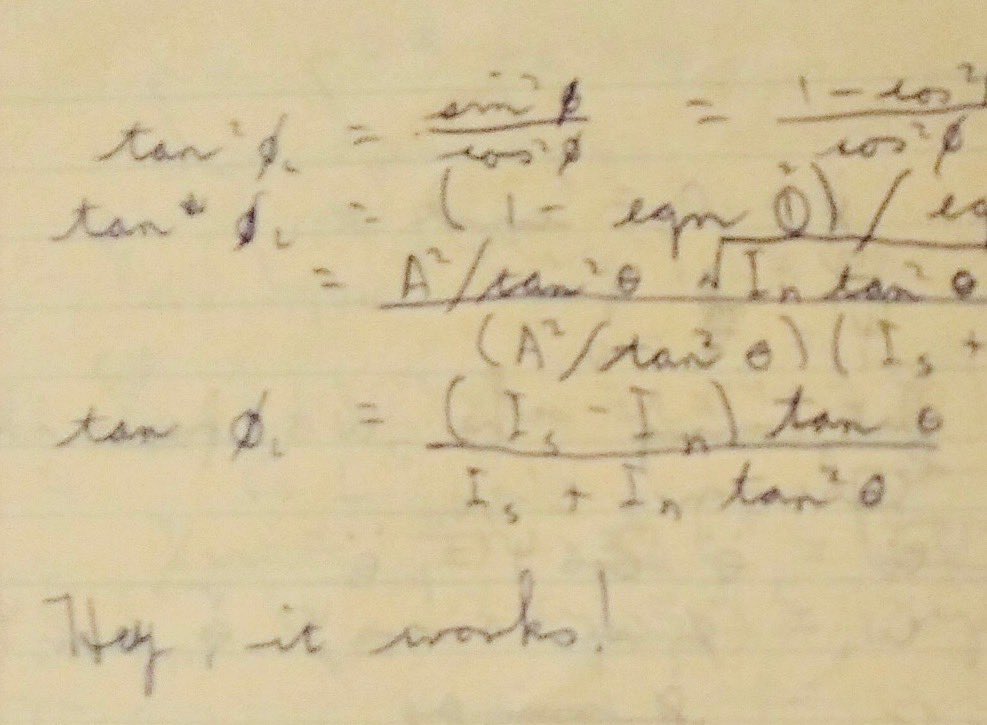 tan² ϕ₁ = sin² ϕ / cos² ϕ = 1 - cos² / cos² ϕ
tan ϕ₁ = (1 - eqn ①²) /
= A²/tan² θ √ Iₙ tan² θ / (A²/tan² θ) (Iₛ +
tan ϕ₁ = (Iₛ - Iₙ) tan θ / Iₛ + Iₙ tan² θ
Hey, it works!